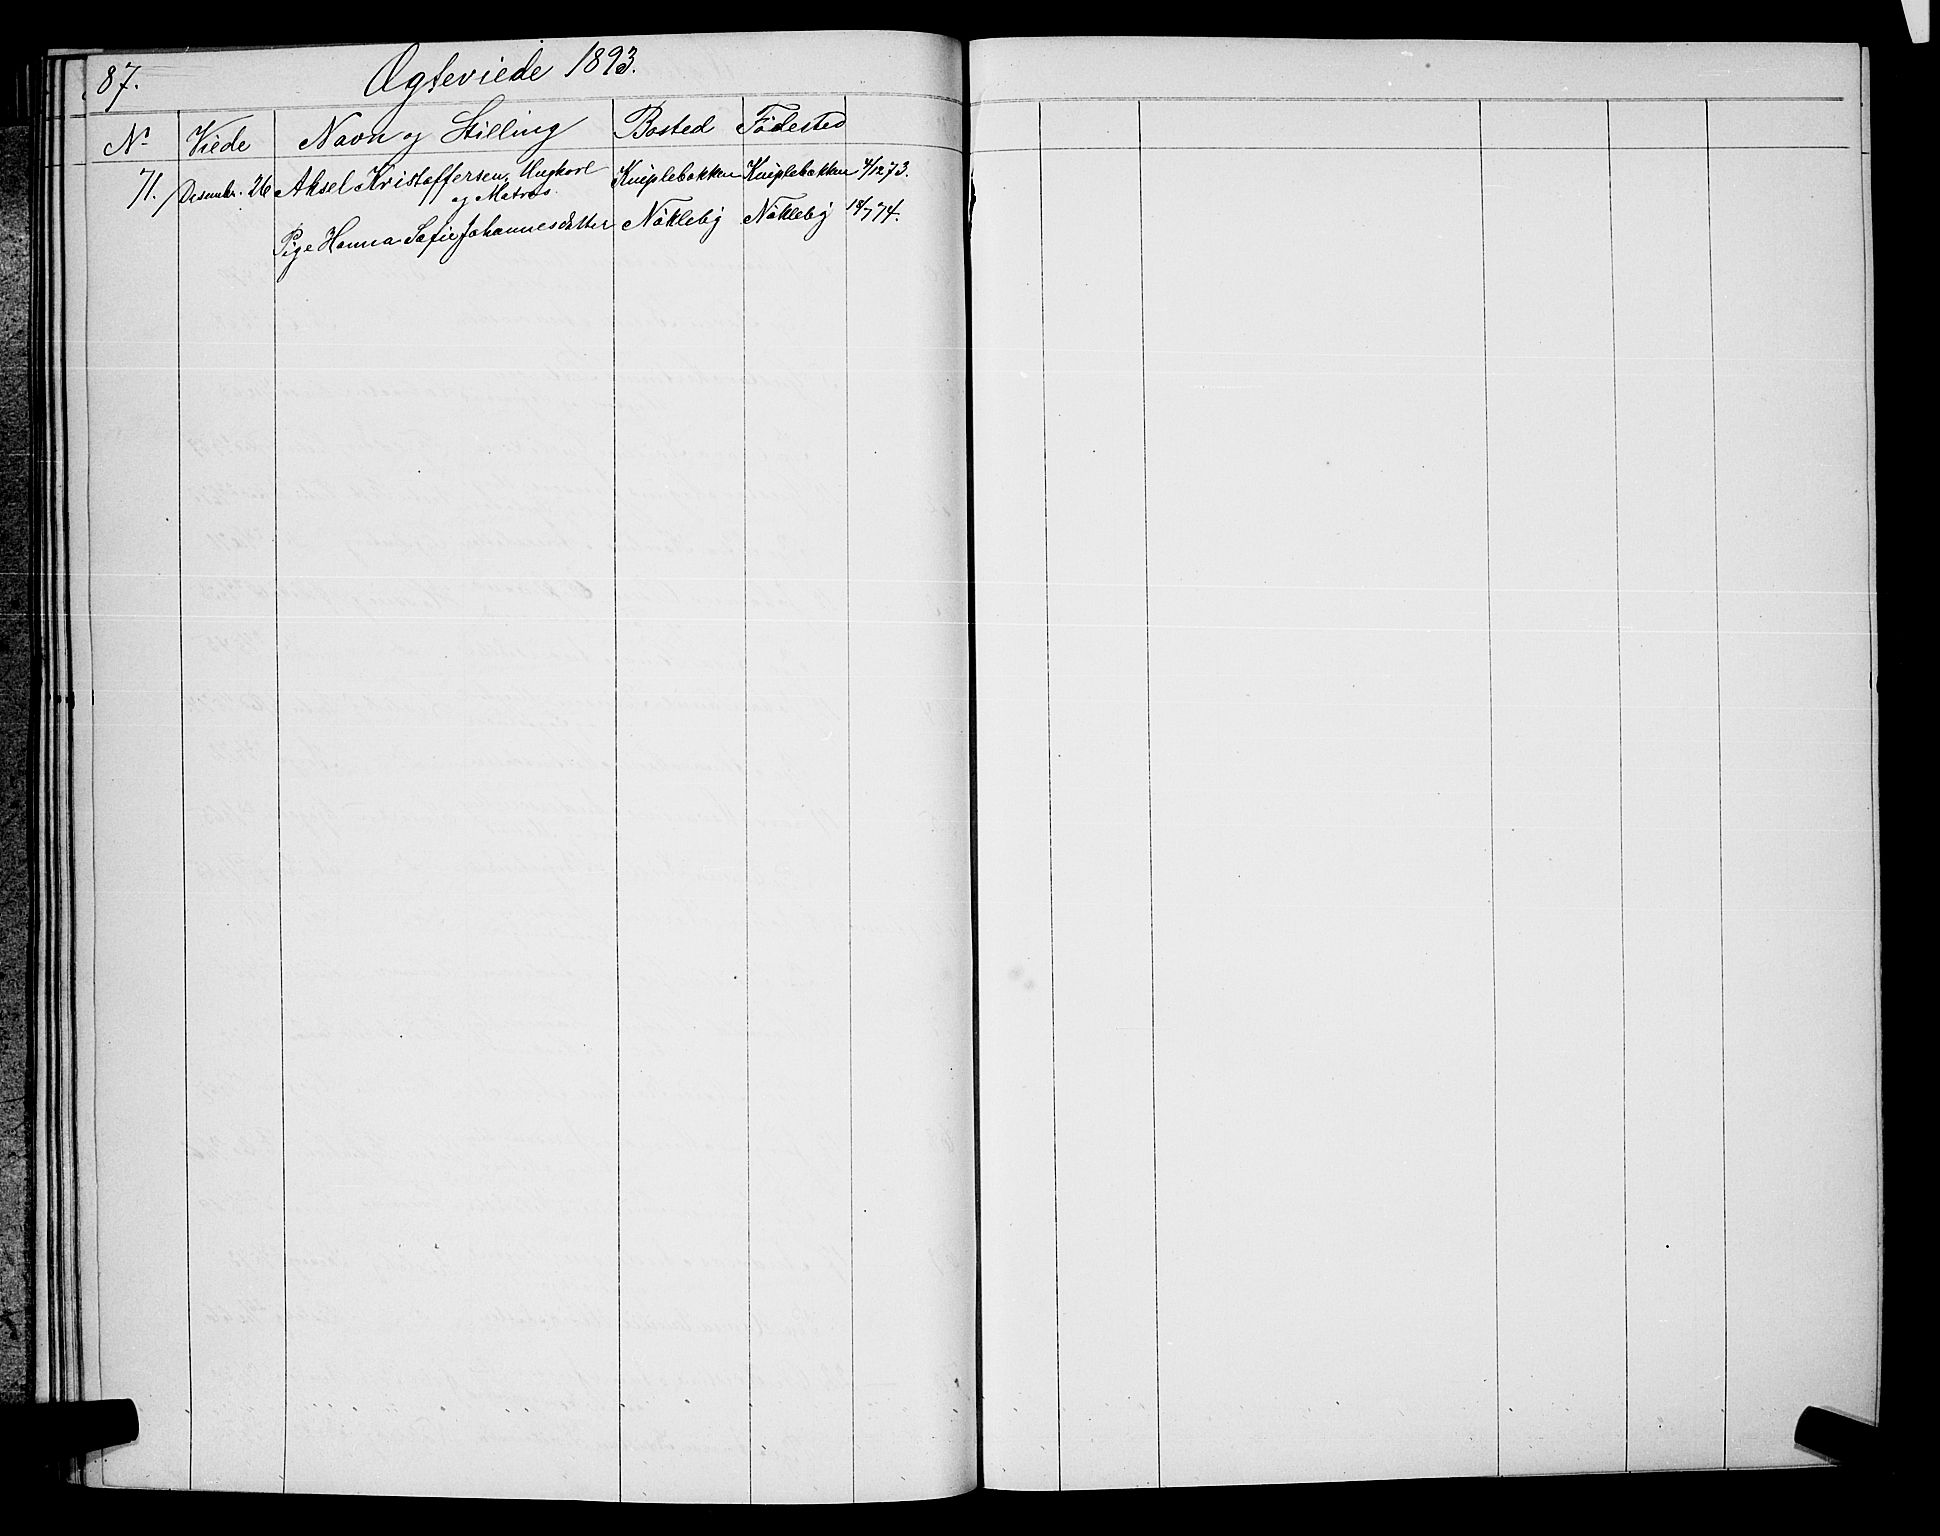 87. Ægteviede 1893.
No Viede Navn og Stilling Bosted Fødested
71. Desembr. 26 Aksel Kristoffersen, Ungkarl Kniplebakken Kniplebakken 4/12 73.
og Matros.
Pige Hanna Sofie Johannesdatter Nøkleby Nøkleby 18/7 74.